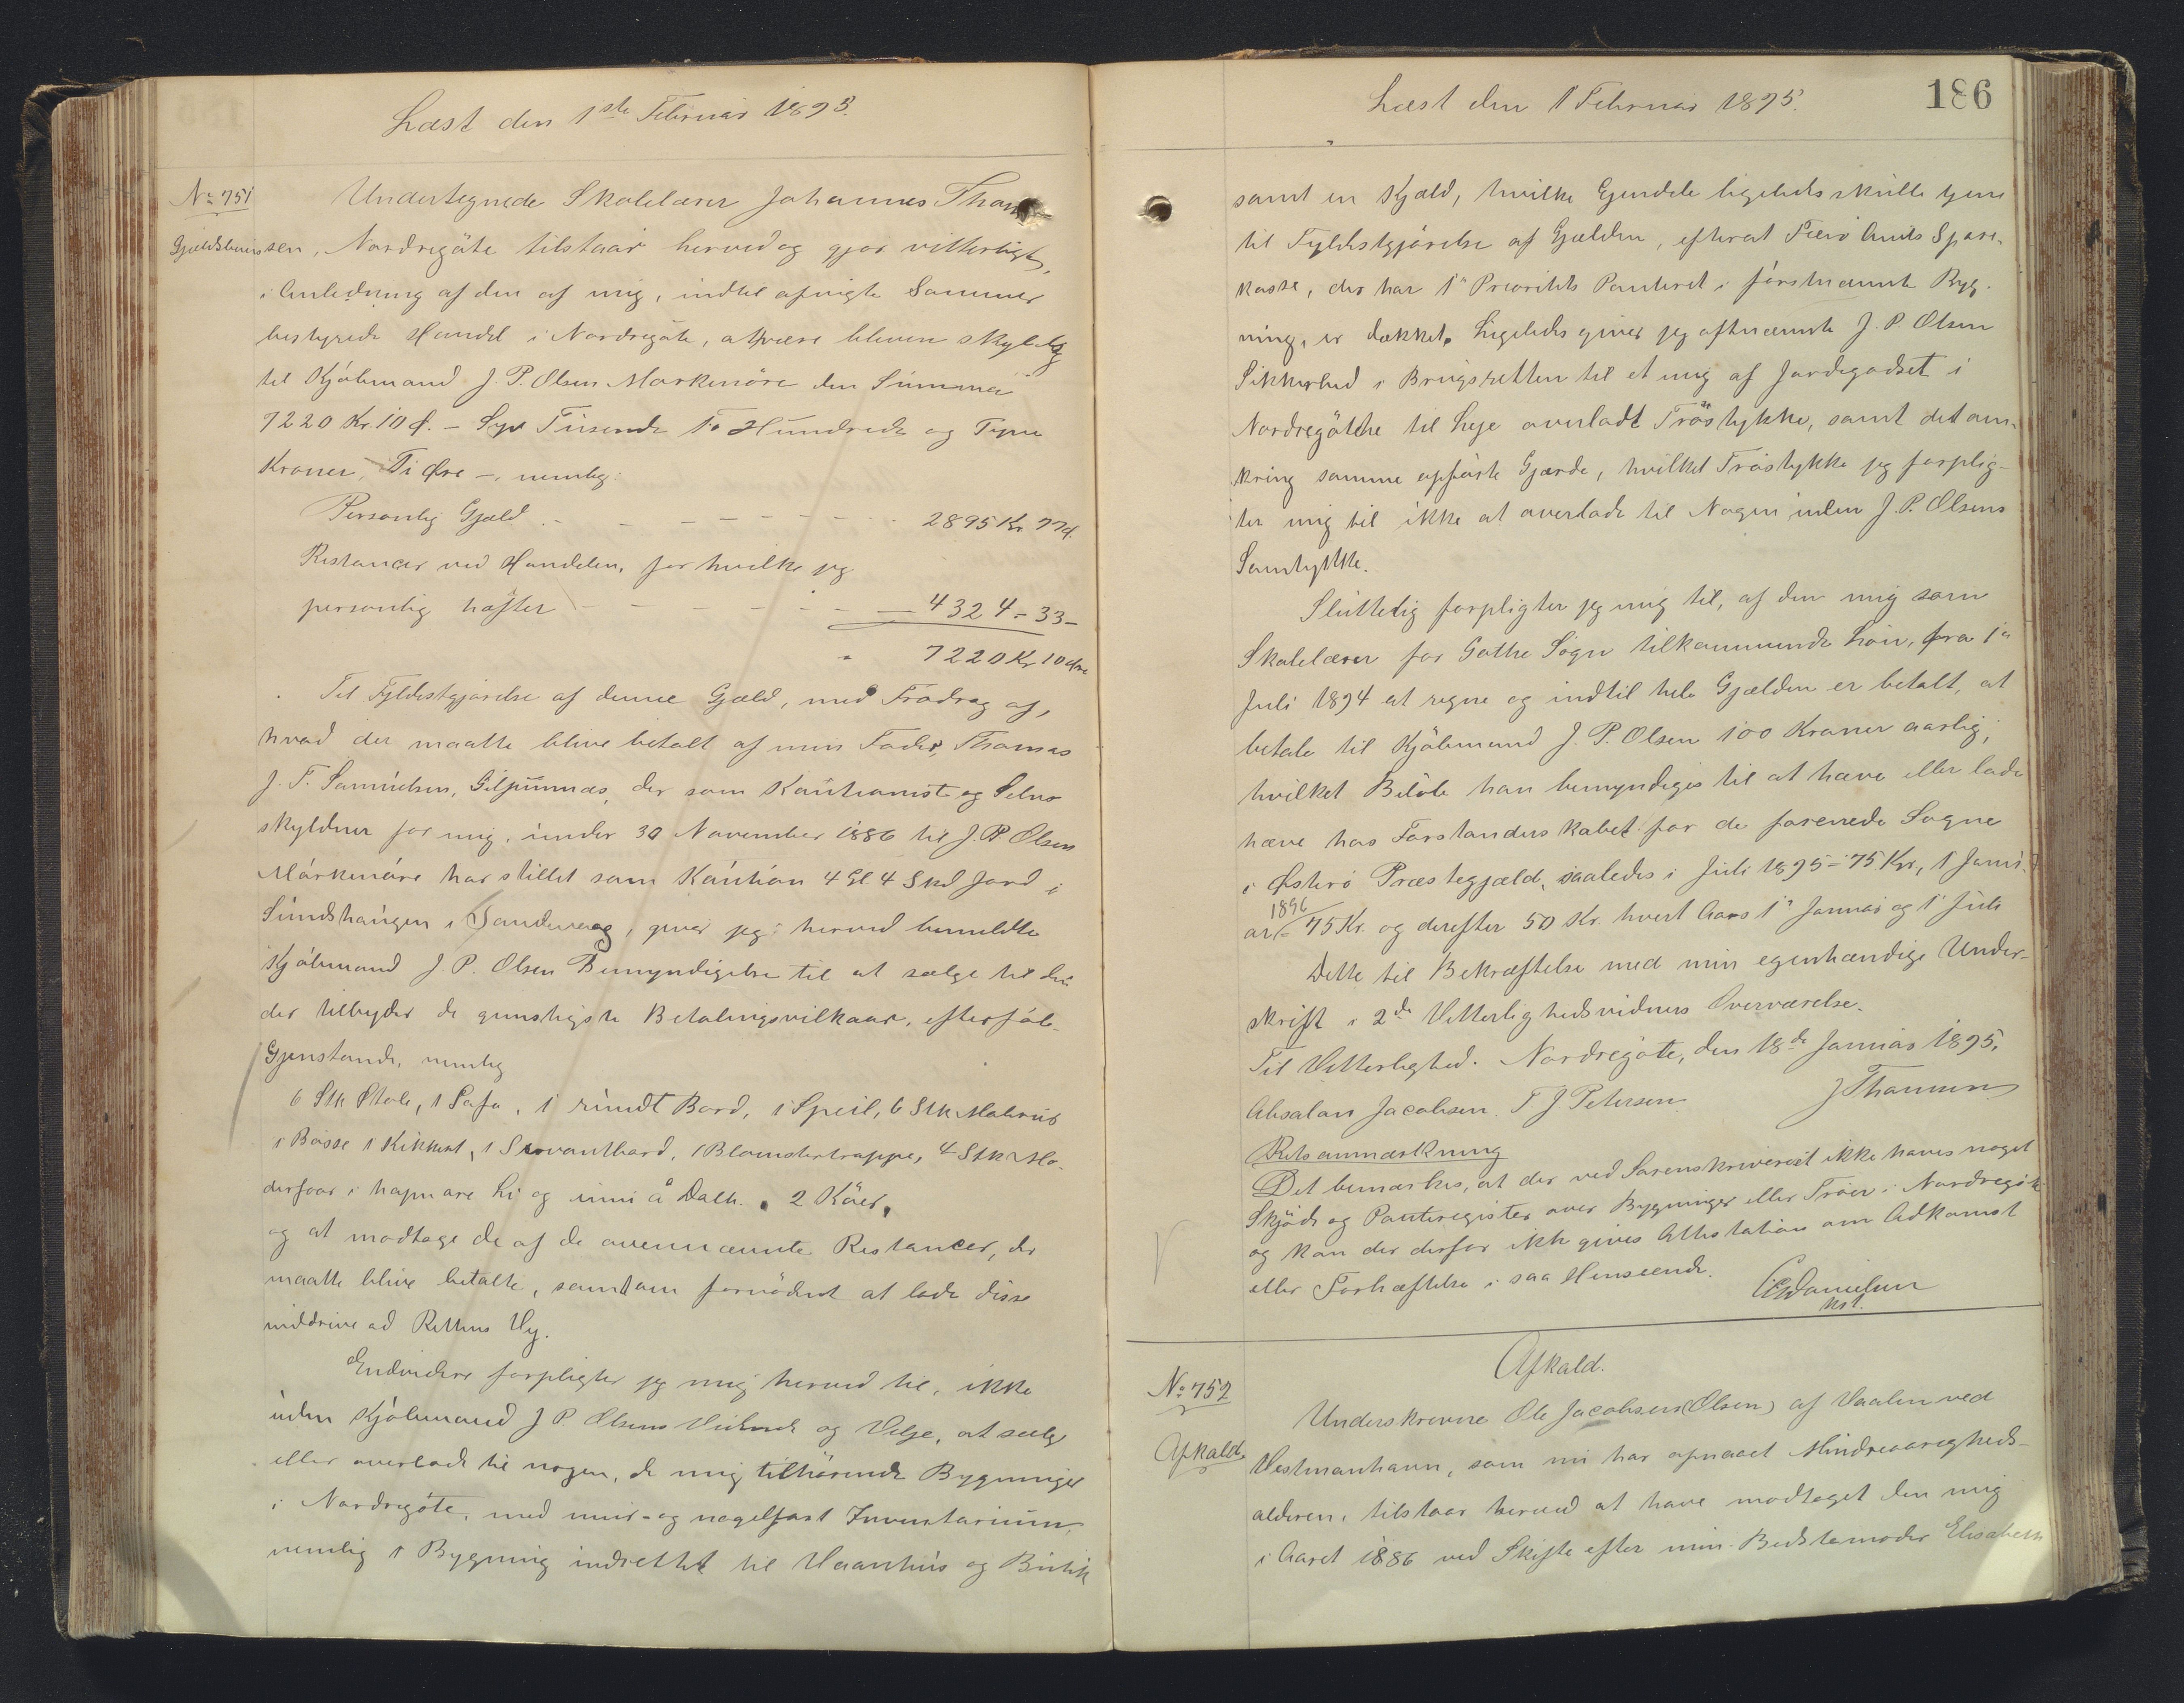 Læst den 1ste Februar 1895.
No 751
Gjældsbevis
Undertegnede Skolelærer Johannes Thom
sen, Nordregøte tilstaar herved og gjør vitterligt,
i Anledning af den af mig, indtil afvigte Sommer
bestyrede Handel i Nordregøte, at være bleven skyldig
til Kjøbmand J. P. Olsen Morkenöre den Summa
7220 Kr. 10 Ø. – Syv Tusende To Hundrede og Tyve
Kroner, Ti Øre –, nemlig:
Personlig Gjæld . – – – – – – – – 2895 Kr. 77 Ø.
Restancer ved Handelen, for hvilke jeg
personlig hæfter – – – – – – – 4324 – 33 –
" 7220 Kr 10 Øre
Til Fyldestgjørelse af denne Gjæld, med Fradrag af,
hvad der maatte blive betalt af min Fader, Thomas
J. F. Samuelsen, Giljumnæs, der som Kautionist og Selv-
skyldner for mig, under 30 November 1886 til J. P. Olsen
Morkenöre har stillet som Kaution 4 Gl. 4 Skd Jord i
Sundshaugen i Sandevaag, giver jeg herved bemeldte
Kjøbmand J. P. Olsen Bemyndigelse til at sælge til den
der tilbyder de gunstigste Betalingsvilkaar, efterføl-
Gjenstande, nemlig
6 Stk Stole, 1 Sofa, 1 rundt Bord, 1 Speil, 6 Stk Malerier
1 Bøsse 1 Kikkert, 1 Servantbord, 1 Blomstertrappe, 4 Stk Mo-
derfaar i hapnare Li og inni å Dalh. 2 Køer,
og at modtage de af de ovennævnte Restancer, der
maatte blive betalte, samt om fornødent at lade disse
inddrive ad Rettens Vej.
Endvidere forpligter jeg mig herved til, ikke
uden Kjøbmand J P. Olsens Vidende og Vilje, at sælge
eller overlade til nogen, de mig tilhørende Bygninger
i Nordregøte, med mur- og nagelfast Inventarium,
nemlig 1 Bygning indrettet til Vaanhus og Butik
Læst den 1 Februar 1895.
186
samt en Kjæld, hvilke Ejendele ligeledes skulle tjene
til Fyldestgjørelse af Gjælden, efterat Færø Amts Spare-
kasse, der har 1ste Prioritets Panteret i førstnævnte Byg-
ning, er dækket. Ligeledes giver jeg oftnævnte J. P. Olsen
Sikkerhed i Brugsretten til et mig af Jordegodset i
Nordregøthe til Leje overladt Trøstykke, samt det om-
kring samme opførte Gjærde, hvilket Trøstykke jeg forplig-
ter mig til ikke at overlade til Nogen uden J. P. Olsens
Samtykke.
Sluttelig forpligter jeg mig til, af den mig som
Skolelærer for Gøthe Sogn tilkommende Løn, fra 1ste
Juli 1894 at regne og indtil hele Gjælden er betalt, at
betale til Kjøbmand J. P. Olsen 100 Kroner aarlig;
hvilket Beløb han bemyndiges til at hæve eller lade
hæve hos Forstanderskabet for de forenede Sogne
i Østerø Præstegjæld, saaledes i Juli 1895 = 75 Kr, 1 Janu-
ar 1896 = 75 Kr. og derefter 50 Kr. hvert Aars 1' Januar og 1' Juli
Dette til Bekræftelse med min egenhændige Under-
skrift i 2de Vitterlighedsvidners Overværelse.
Til Vitterlighed. Nordregøte, den 18de Januar 1895.
Absalon Jacobsen. T J. Petersen. J Thomsen
Retsanmærkning
Det bemærkes, at der ved Sorenskriveriet ikke haves noget
Skjøde og Panteregister over Bygninger eller Trøer i Nordregøte
og kan der derfor ikke gives Attestation om Adkomst
eller Forhæftelse i saa Henseende.
Danielsen
kst.
No 752
Afkald
Afkald.
Underskrevne Ole Jacobsen (Olsen) af Vaalen ved
Vestmanhavn, som nu har opnaaet Mindreaarigheds-
alderen, tilstaar herved at have modtaget den mig
i Aaret 1886 ved Skifte efter min Bedstemoder Elisabeth